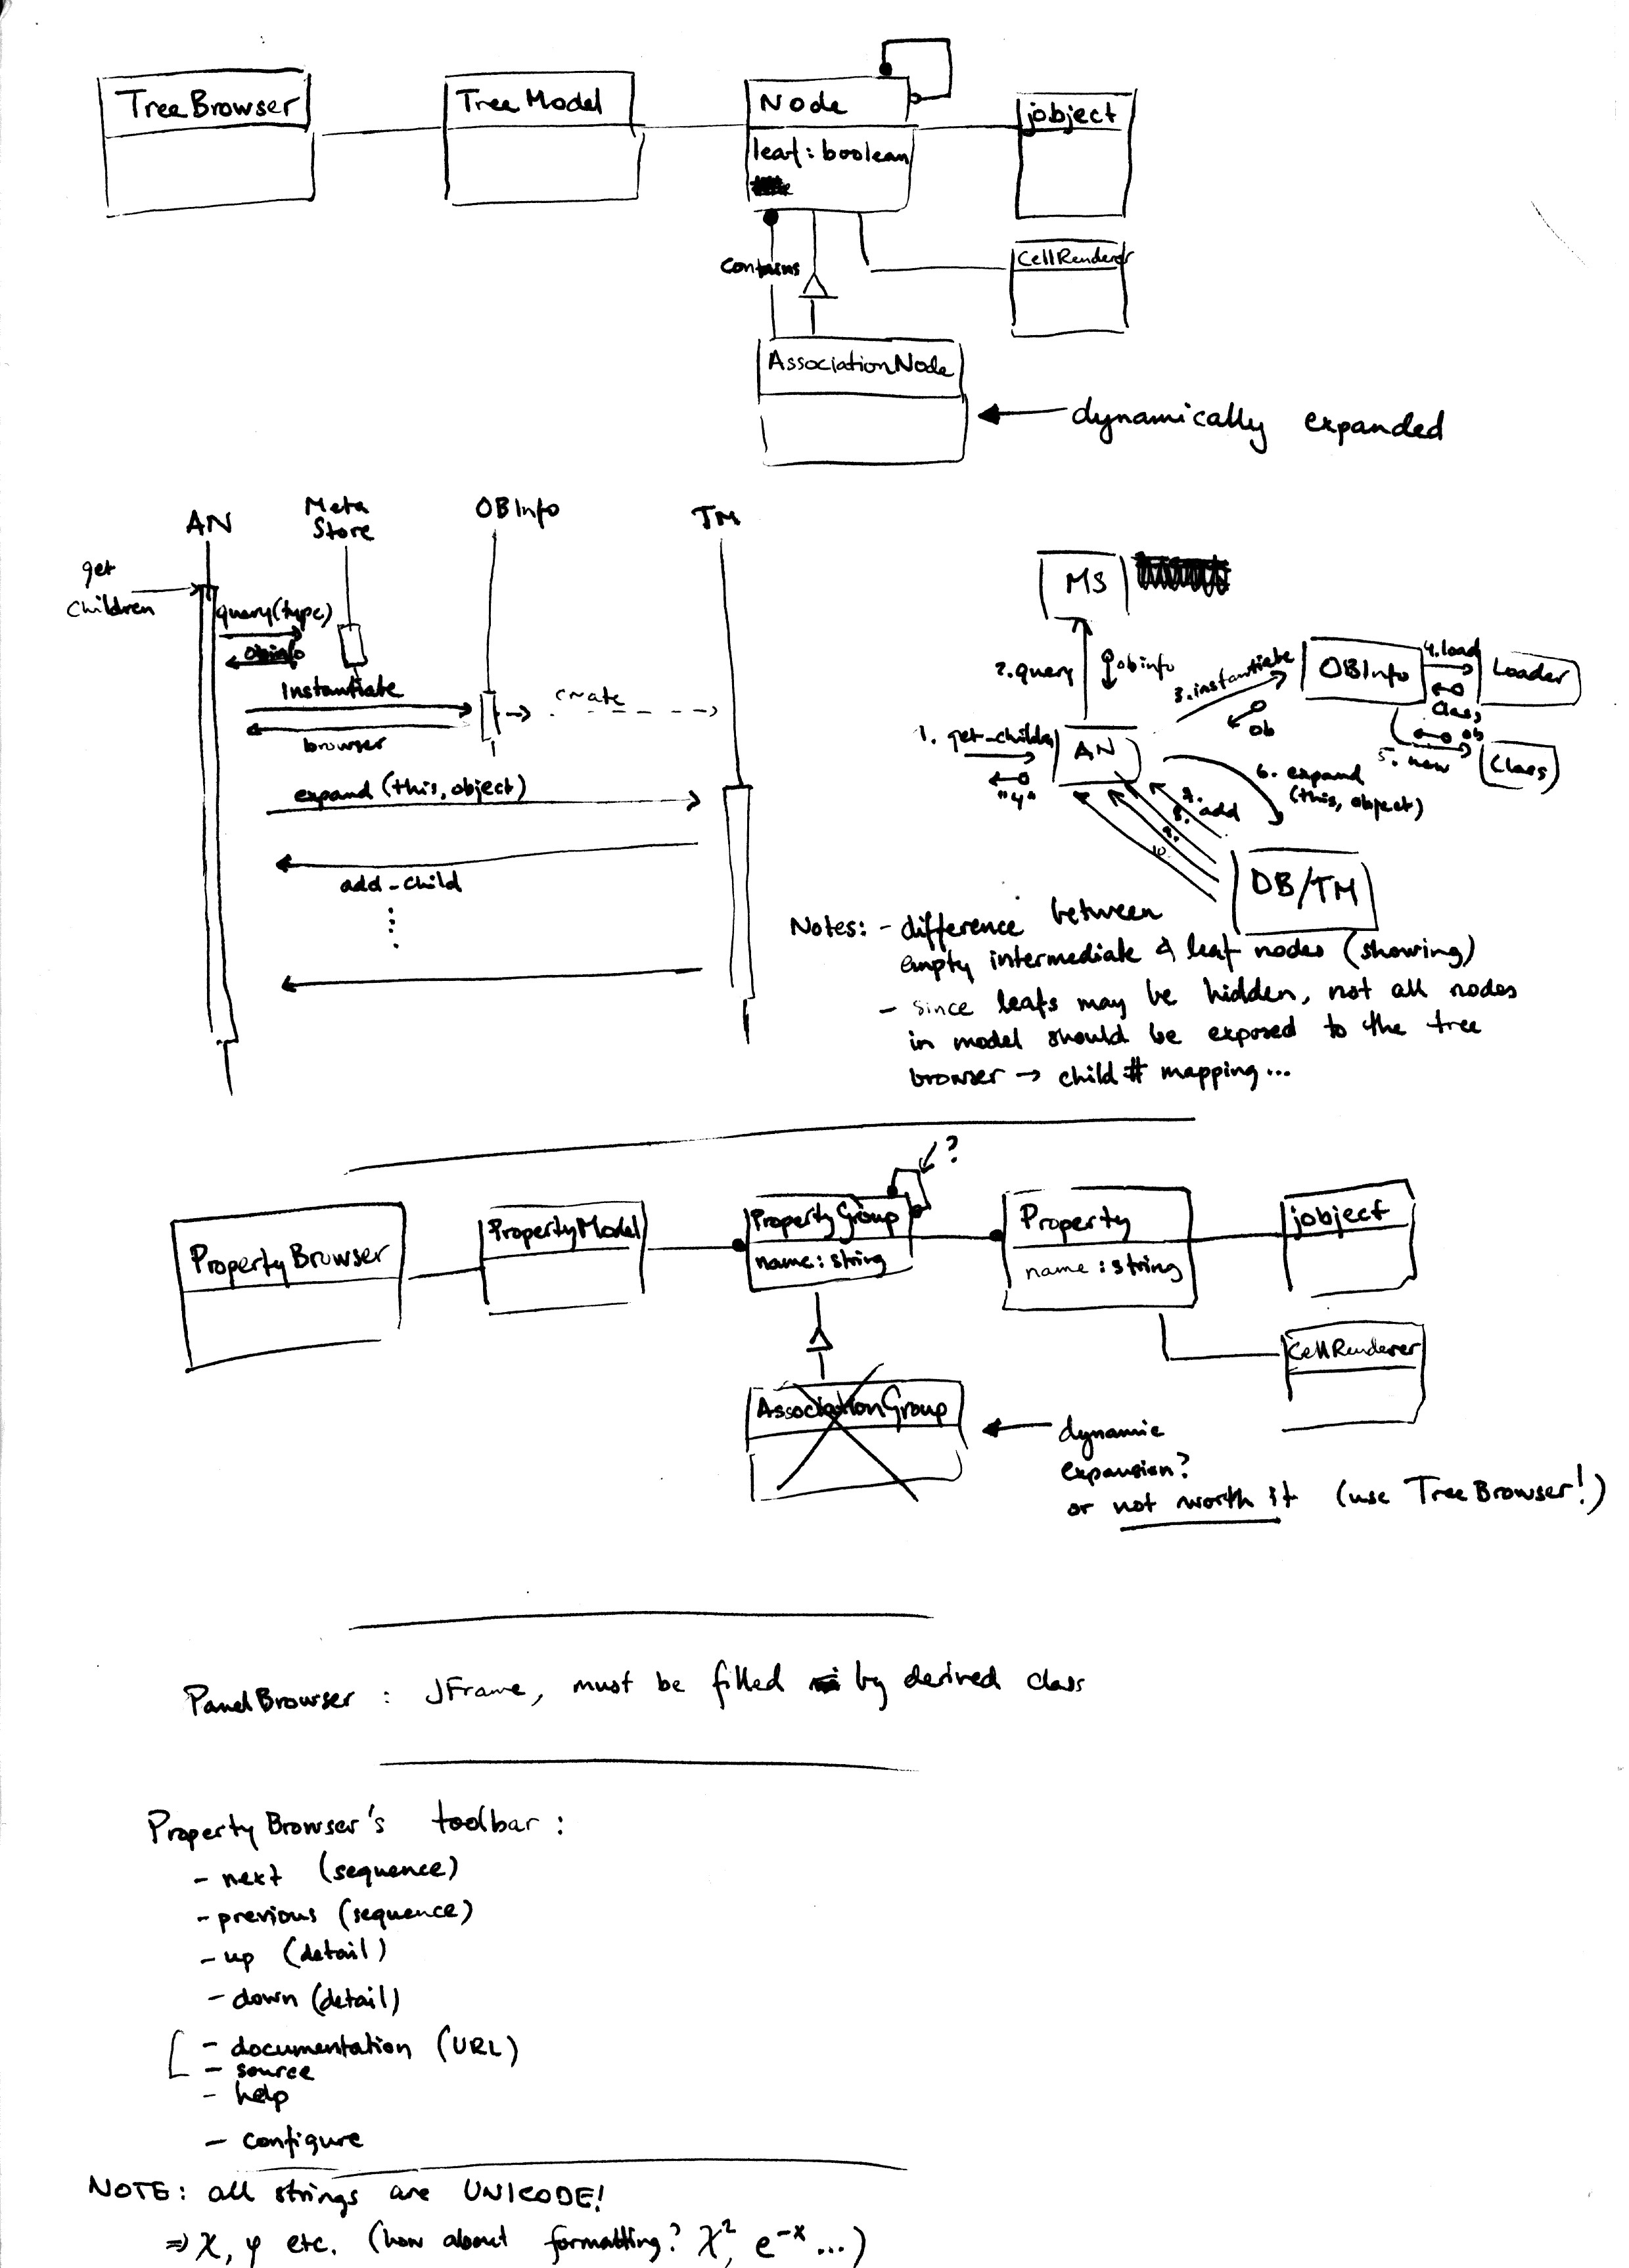 TreeBrowser
TreeModel
Node
leaf: boolean
jobject
CellRenderer
contains
AssociationNode
dynamically expanded
AN
Meta
Store
OBInfo
TM
get
children
query(type)
obinfo
instantiate
create
browser
expand (this, object)
add_child
⋮
MS
2. query
obinfo
3. instantiate
ob
OBInfo
4. load
class
Loader
ob
5. new
Class
1. get_children
"4"
AN
6. expand
(this, object)
7. add
8.
9.
10.
OB/TM
Notes: - difference between
empty intermediate & leaf nodes (showing)
- since leafs may be hidden, not all nodes
in model should be exposed to the tree
browser → child # mapping...
?
PropertyBrowser
PropertyModel
PropertyGroup
name: string
Property
name: string
jobject
CellRenderer
AssociationGroup
dynamic
expansion?
or not worth it (use TreeBrowser!)
PanelBrowser : JFrame, must be filled by derived class
PropertyBrowser's toolbar:
- next (sequence)
- previous (sequence)
- up (detail)
- down (detail)
- documentation (URL)
- source
- help
- configure
NOTE: all strings are UNICODE!
⇒ χ, φ etc. (how about formatting? χ², e⁻ˣ ...)